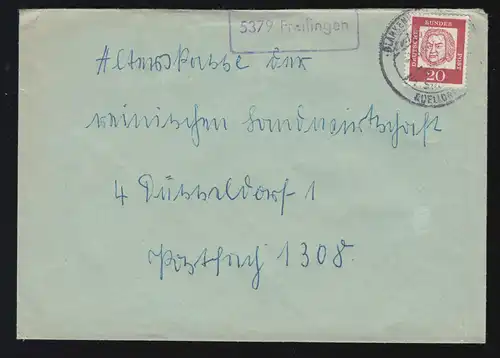 5379 Freilingen
BLANKENH
(AHR)
DEUTSCHE BUNDESPOST
20
Alterskasse der
reinischen Landwirtschaft
4 Düsseldorf 1
Postfach 1308